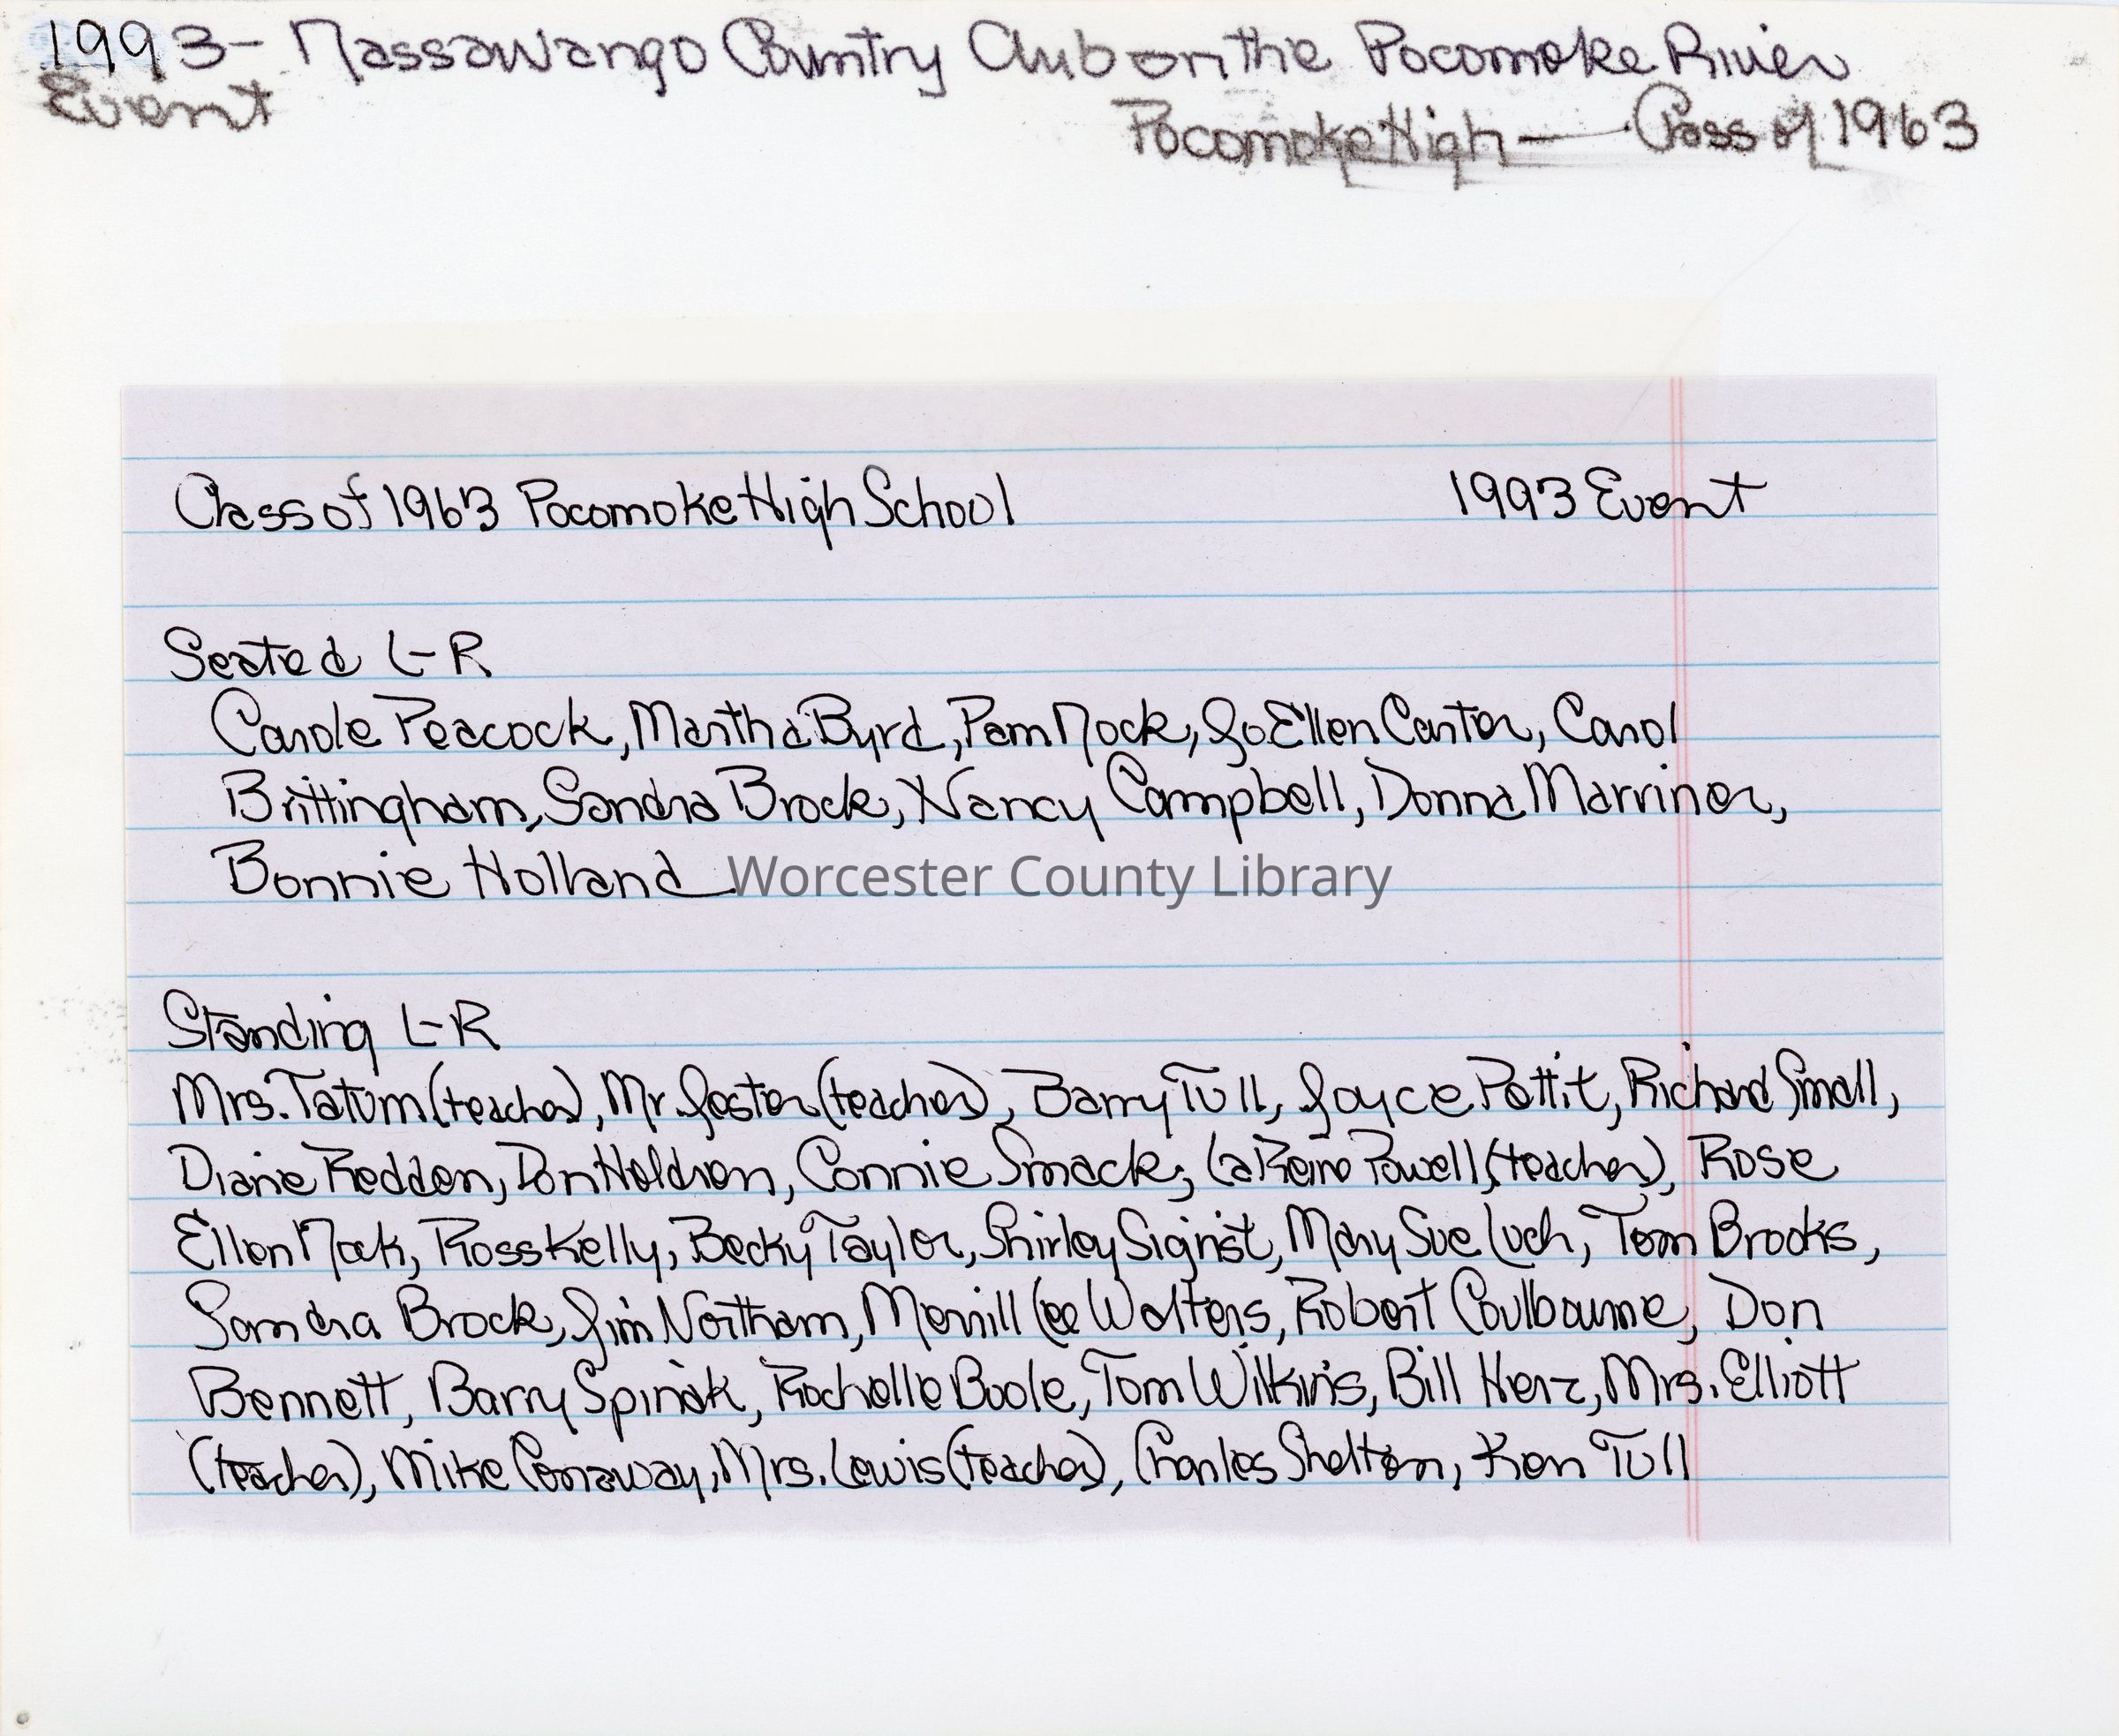 1993- Nassawango Country Club on the Pocomoke River
Event
Pocomoke High — Class of 1963
Class of 1963 Pocomoke High School 1993 Event
Seated L-R
Carole Peacock, Martha Byrd, Pam Nock, Jo Ellen Carter, Carol
Brittingham, Sandra Brock, Nancy Campbell, Donna Marriner,
Bonnie Holland
Worcester County Library
Standing L-R
Mrs. Tatum (teacher), Mr. Jester (teacher), Barry Tull, Joyce Pettit, Richard Small,
Diane Redden, Don Holdren, Connie Smack, Powell (teacher), Rose
Ellen Nock, Ross Kelly, Becky Taylor, Shirley Sigrist, Mary Sue Luch, Tom Brooks,
Sandra Brock, Jim Northam, Merrill Lee Walters, Robert Coulbourne, Don
Bennett, Barry Spinak, Rochelle Boole, Tom Wilkins, Bill Herz, Mrs. Elliott
(teacher), Mike Conaway, Mrs. Lewis (teacher), Charles Shelton, Ken Tull